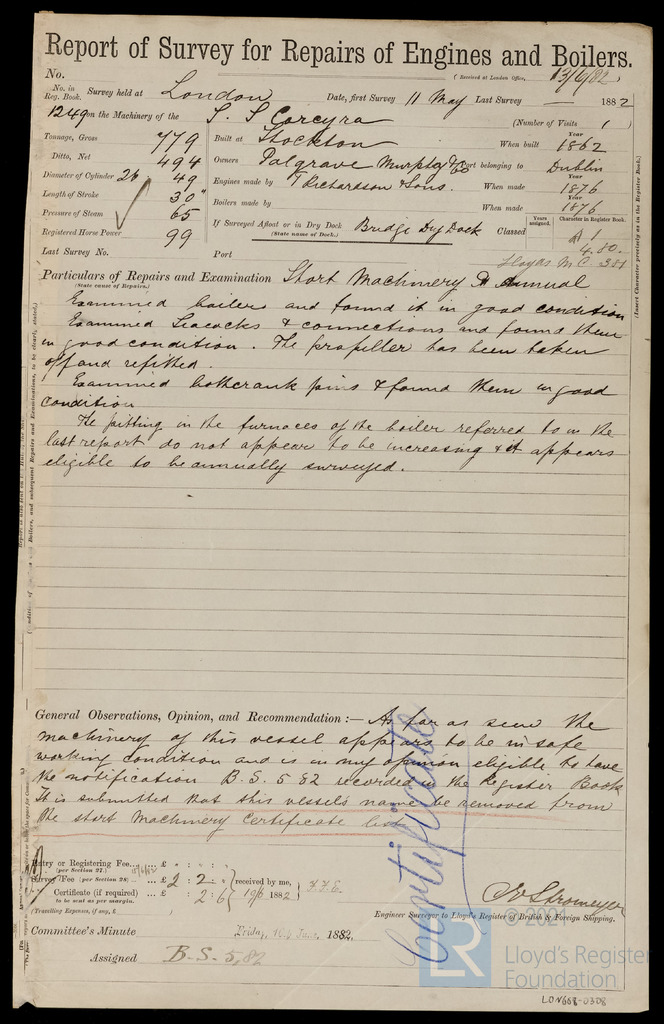 Report of Survey for Repairs of Engines and Boilers.
No. (Received at London Office, 13/6/82)
No. in Reg. Book. Survey held at London Date, first Survey 11 May Last Survey — 1882
1249 on the Machinery of the S. S Corcyra (Number of Visits 1)
Tonnage, Gross 779
Ditto, Net 494
Diameter of Cylinder 26 49
Length of Stroke 30"
Pressure of Steam 65
Registered Horse Power 99
Last Survey No. Port
Built at Stockton When built Year 1862
Owners Palgrave Murphy & Co Port belonging to Dublin
Engines made by T Richardson & Sons. When made Year 1876
Boilers made by When made Year 1876
If Surveyed Afloat or in Dry Dock Bridge Dry Dock Classed
(State name of Dock.)
Years assigned. Character in Register Book.
A1
4.80.
Lloyds M.C. 3 81
(Insert Character precisely as in the Register Book.)
Particulars of Repairs and Examination Start Machinery & Annual
(State cause of Repairs.)
Examined boiler and found it in good condition
Examined Seacocks & connections and found them
in good condition. The propeller has been taken
off and refitted.
Examined both crank pins & found them in good
condition
The pitting in the furnaces of the boiler referred to in the
last report do not appear to be increasing & it appears
eligible to be annually surveyed.
General Observations, Opinion, and Recommendation:— As far as seen the
machinery of this vessel appears to be in safe
working condition and is in my opinion eligible to have
the notification B.S. 5 82 recorded in the Register Book
It is submitted that this vessels name be removed from
the start machinery certificate list
Certificate
Entry or Registering Fee... £ : :
(per Section 27.)
Survey Fee (per Section 28) ... £ 2 : 2 :
Certificate (if required) ... £ : 2 : 6
to be sent as per margin.
(Travelling Expenses, if any, £ )
received by me,
19/6 1882
Engineer Surveyor to Lloyd's Register of British & Foreign Shipping.
Committee's Minute Friday, 16th June, 1882.
Assigned B.S. 5,82
© 2021
LR
Lloyd's Register
Foundation
LON668-0308